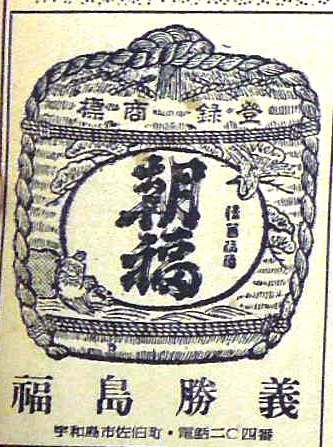 登錄商標
朝福
福島勝義
宇和島市佐伯町・電話二〇四番